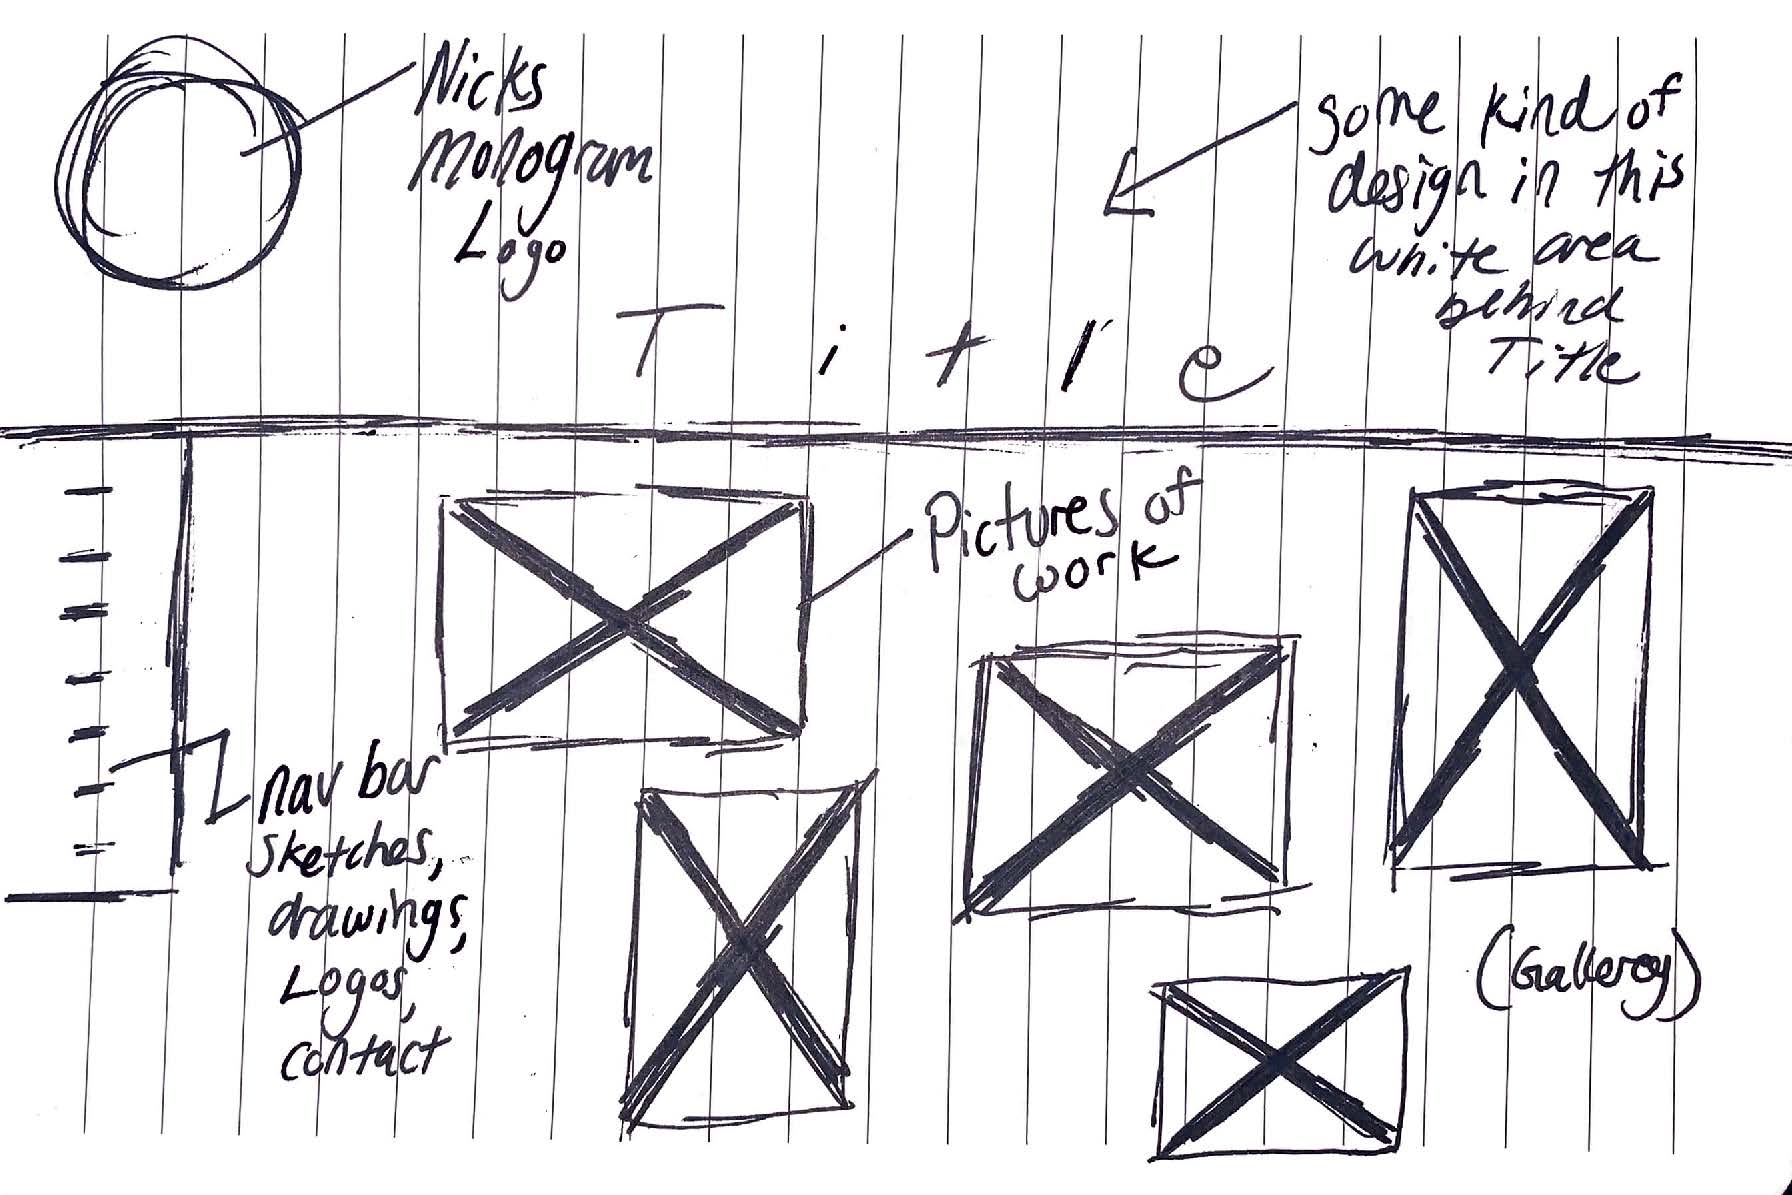 Nicks
Monogram
Logo
some kind of
design in this
white area
behind
Title
Title
Pictures of
work
nav bar
sketches,
drawings,
Logos,
contact
(Gallerey)